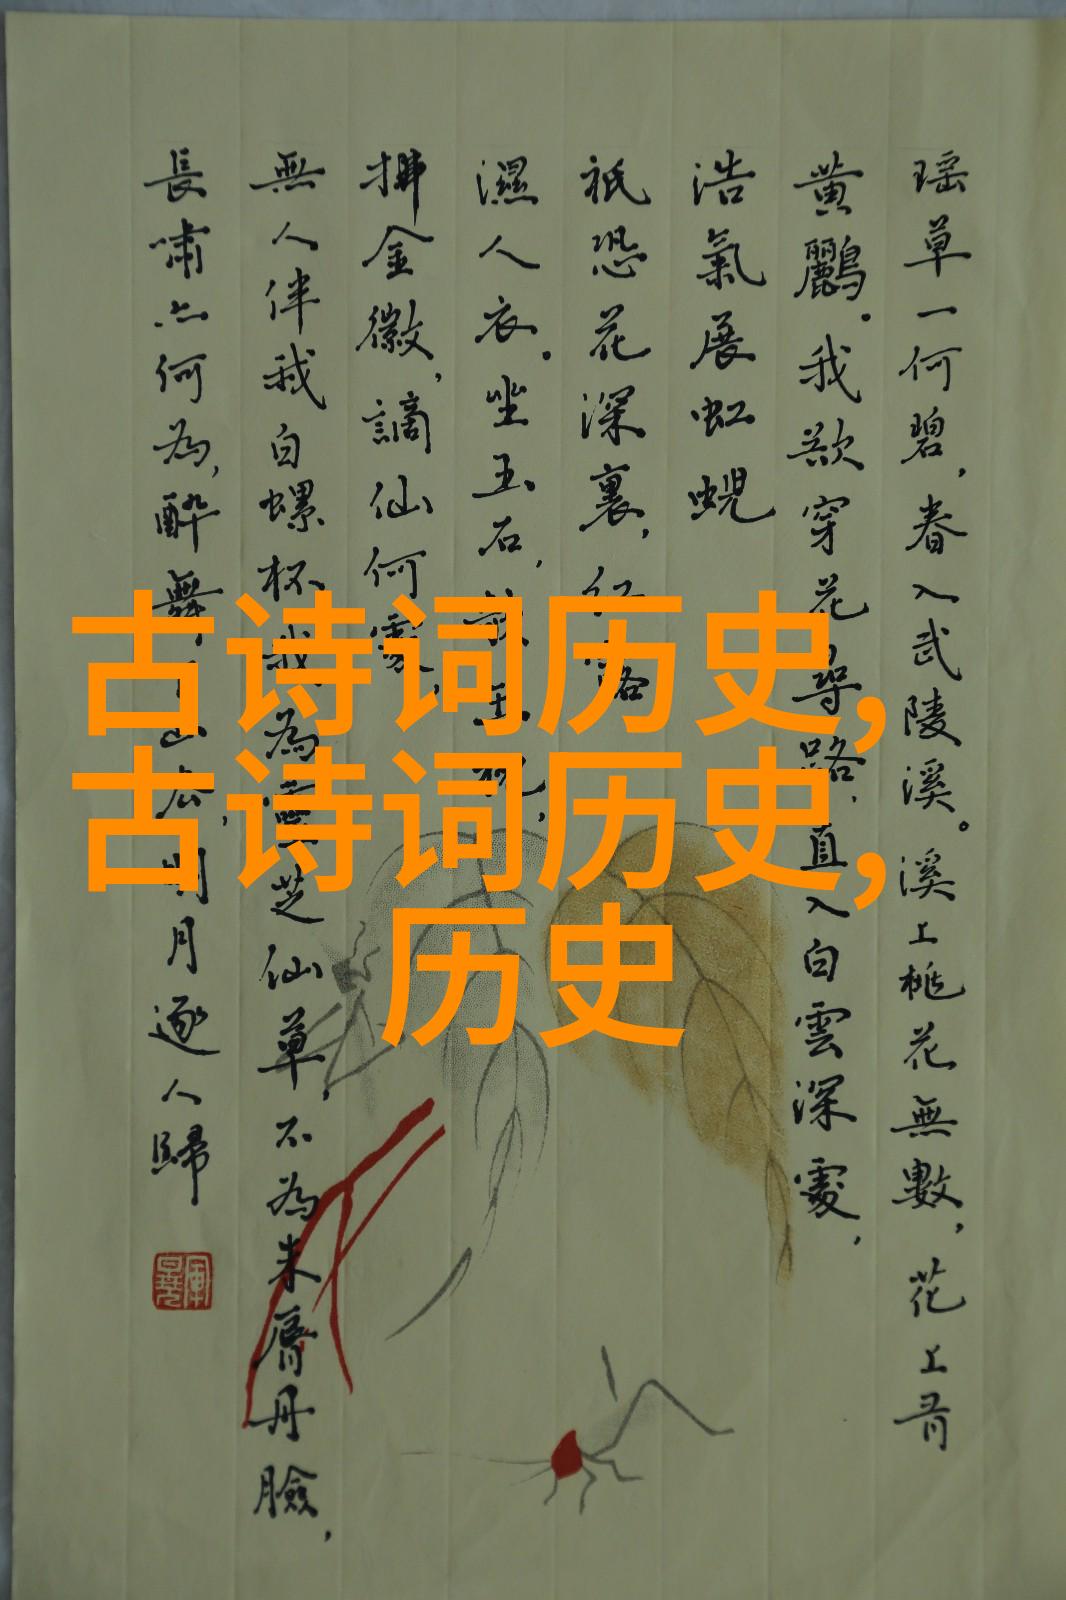 瑶草一何碧，春入武陵溪。溪上桃花無數，花上有
黄鸝。我欲穿花尋路，直入白雲深處，
浩氣展虹蜺
祇恐花深裏，紅露
濕人衣。坐玉石，玉枕，
拂金徽，謫仙何處，
無人伴我白螺杯我為靈芝仙草，不為朱脣丹臉，
長嘯亦何為，醉舞下山去，明月逐人歸
古诗词历史,
古诗词历史,
历史